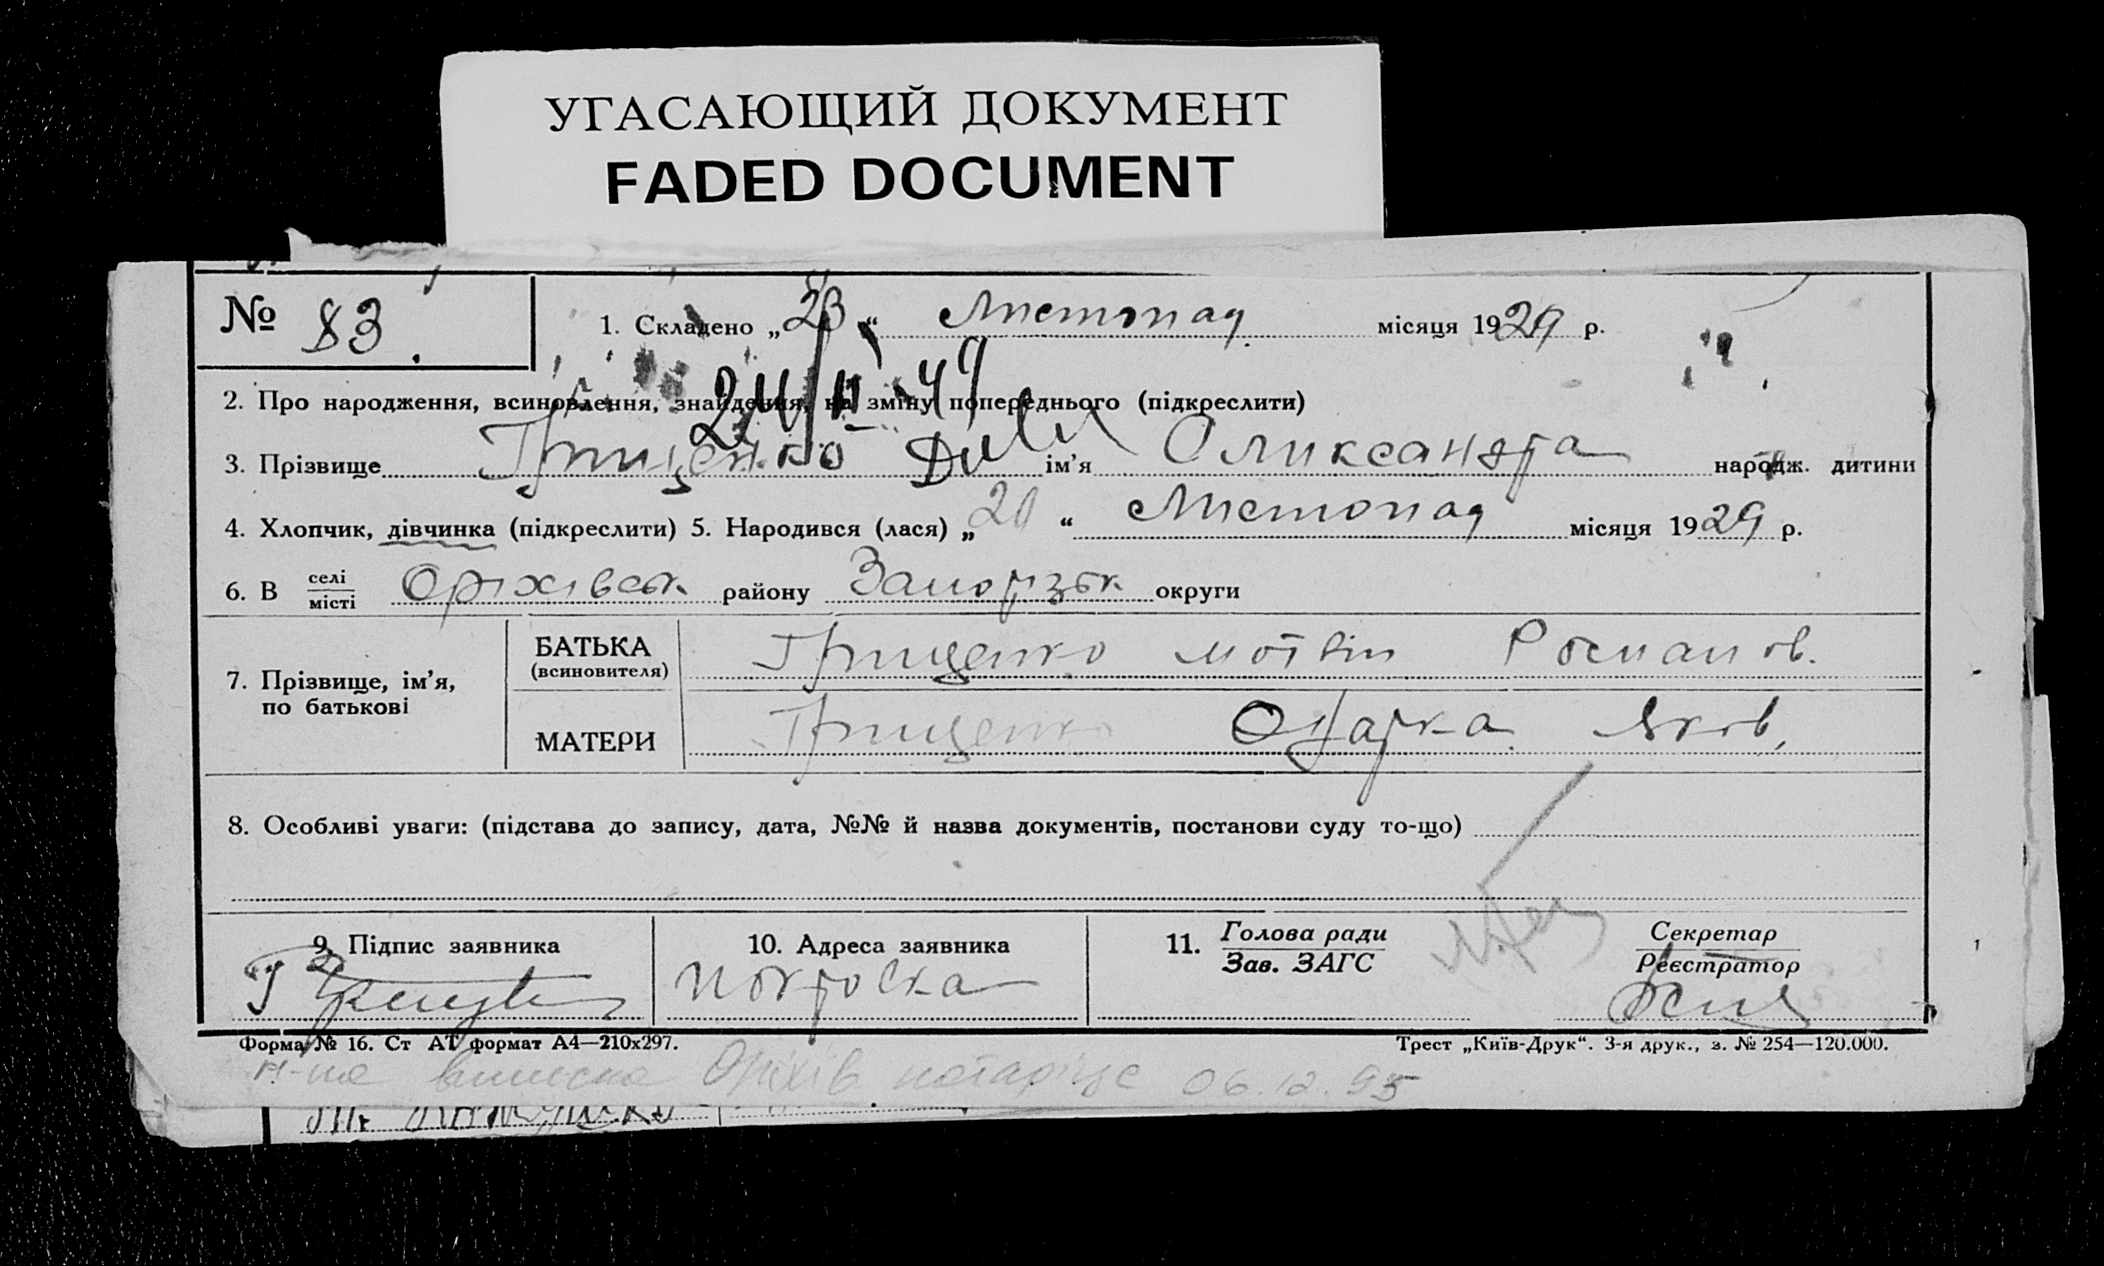 УГАСАЮЩИЙ ДОКУМЕНТ
FADED DOCUMENT
№ 83.
1. Складено „23“ Листопад місяця 1929 р.
24/II-49
2. Про народження, всиновлення, знайдення, на зміну попереднього (підкреслити)
3. Прізвище Грищенко ім’я Олександра народж. дитини
4. Хлопчик, дівчинка (підкреслити) 5. Народився (лася) „20“ Листопад місяця 1929 р.
6. В селі місті Оріхівськ. району Запорізьк. округи
7. Прізвище, ім’я, по батькові
БАТЬКА (всиновителя) Грищенко Мотвій Романов.
МАТЕРИ Грищенко Одарка Яков.
8. Особливі уваги: (підстава до запису, дата, №№ й назва документів, постанови суду то-що)
9. Підпис заявника
10. Адреса заявника
Покровска
11. Голова ради Зав. ЗАГС
Секретар Реєстратор
Форма № 16. Ст АТ формат А4—210х297.
Трест „Київ-Друк“. 3-я друк., з. № 254—120.000.
виписка Оріхів нотаріус 06.12.95